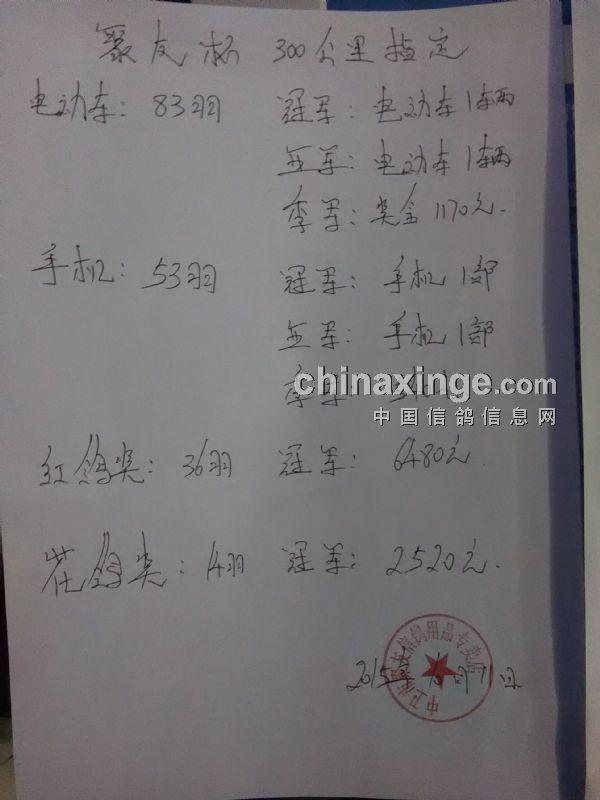 聚友杯 300公里指定
电动车: 83羽 冠军: 电动车1辆
亚军: 电动车1辆
季军: 奖金1170元.
手机: 53羽 冠军: 手机1部
亚军: 手机1部
季军:
chinaxinge.com
中国信鸽信息网
红鸽奖: 36羽 冠军: 6480元.
花鸽奖: 14羽 冠军: 2520元.
中卫市聚友信鸽用品专卖店
2015年 月11日